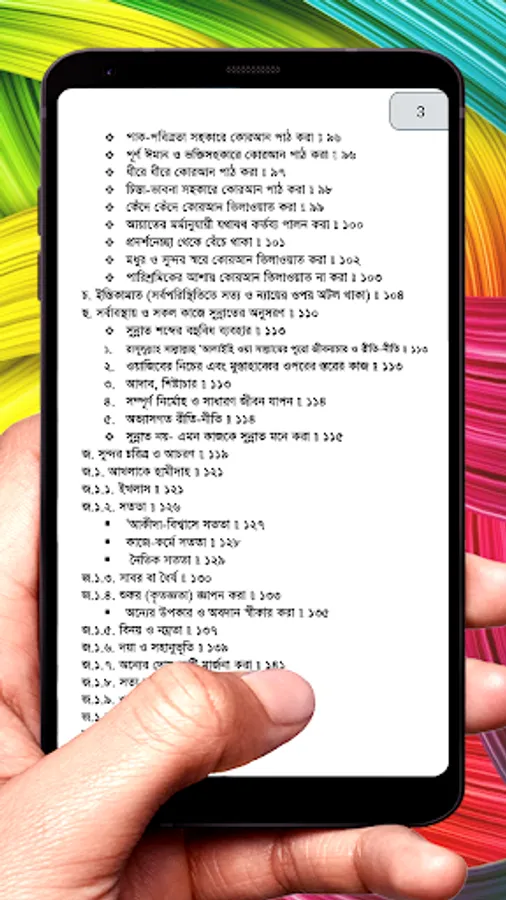 3
❖ পাক-পবিত্রতা সহকারে কোরআন পাঠ করা ॥ ৯৬
❖ পূর্ণ ঈমান ও ভক্তিসহকারে কোরআন পাঠ করা ॥ ৯৬
❖ ধীরে ধীরে কোরআন পাঠ করা ॥ ৯৭
❖ চিন্তা-ভাবনা সহকারে কোরআন পাঠ করা ॥ ৯৮
❖ কেঁদে কেঁদে কোরআন তিলাওয়াত করা ॥ ৯৯
❖ আয়াতের মর্মানুযায়ী যথাযথ কর্তব্য পালন করা ॥ ১০০
❖ প্রদর্শনেচ্ছা থেকে বেঁচে থাকা ॥ ১০১
❖ মধুর ও সুন্দর স্বরে কোরআন তিলাওয়াত করা ॥ ১০২
❖ পারিশ্রমিকের আশায় কোরআন তিলাওয়াত না করা ॥ ১০৩
চ. ইস্তিকামাত (সর্বপরিস্থিতিতে সত্য ও ন্যায়ের ওপর অটল থাকা) ॥ ১০৪
ছ. সর্বাবস্থায় ও সকল কাজে সুন্নাতের অনুসরণ ॥ ১১০
❖ সুন্নাত শব্দের বহুবিধ ব্যবহার ॥ ১১৩
১. রাসূলুল্লাহ সাল্লাল্লাহু 'আলাইহি ওয়া সাল্লামের পুরো জীবনাচার ও রীতি-নীতি ॥ ১১৩
২. ওয়াজিবের নিচের এবং মুস্তাহাব্বের ওপরের স্তরের কাজ ॥ ১১৩
৩. আদাব, শিষ্টাচার ॥ ১১৩
৪. সম্পূর্ণ নির্মোহ ও সাধারণ জীবন যাপন ॥ ১১৪
৫. অভ্যাসগত রীতি-নীতি ॥ ১১৪
❖ সুন্নাত নয়- এমন কাজকে সুন্নাত মনে করা ॥ ১১৫
জ. সুন্দর চরিত্র ও আচরণ ॥ ১১৯
জ.১. আখলাকে হামীদাহ ॥ ১২১
জ.১.১. ইখলাস ॥ ১২১
জ.১.২. সততা ॥ ১২৬
▪ 'আকীদা-বিশ্বাসে সততা ॥ ১২৭
▪ কাজে-কর্মে সততা ॥ ১২৮
▪ নৈতিক সততা ॥ ১২৯
জ.১.৩. সাবর বা ধৈর্য ॥ ১৩০
জ.১.৪. শুকর (কৃতজ্ঞতা) জ্ঞাপন করা ॥ ১৩৩
▪ অন্যের উপকার ও অবদান স্বীকার করা ॥ ১৩৫
জ.১.৫. বিনয় ও নম্রতা ॥ ১৩৭
জ.১.৬. দয়া ও সহানুভূতি ॥ ১৩৯
জ.১.৭. অন্যের মার্জনা করা ॥ ১৪১
জ.১.৮. সত্য
জ.১.৯.
জ.১